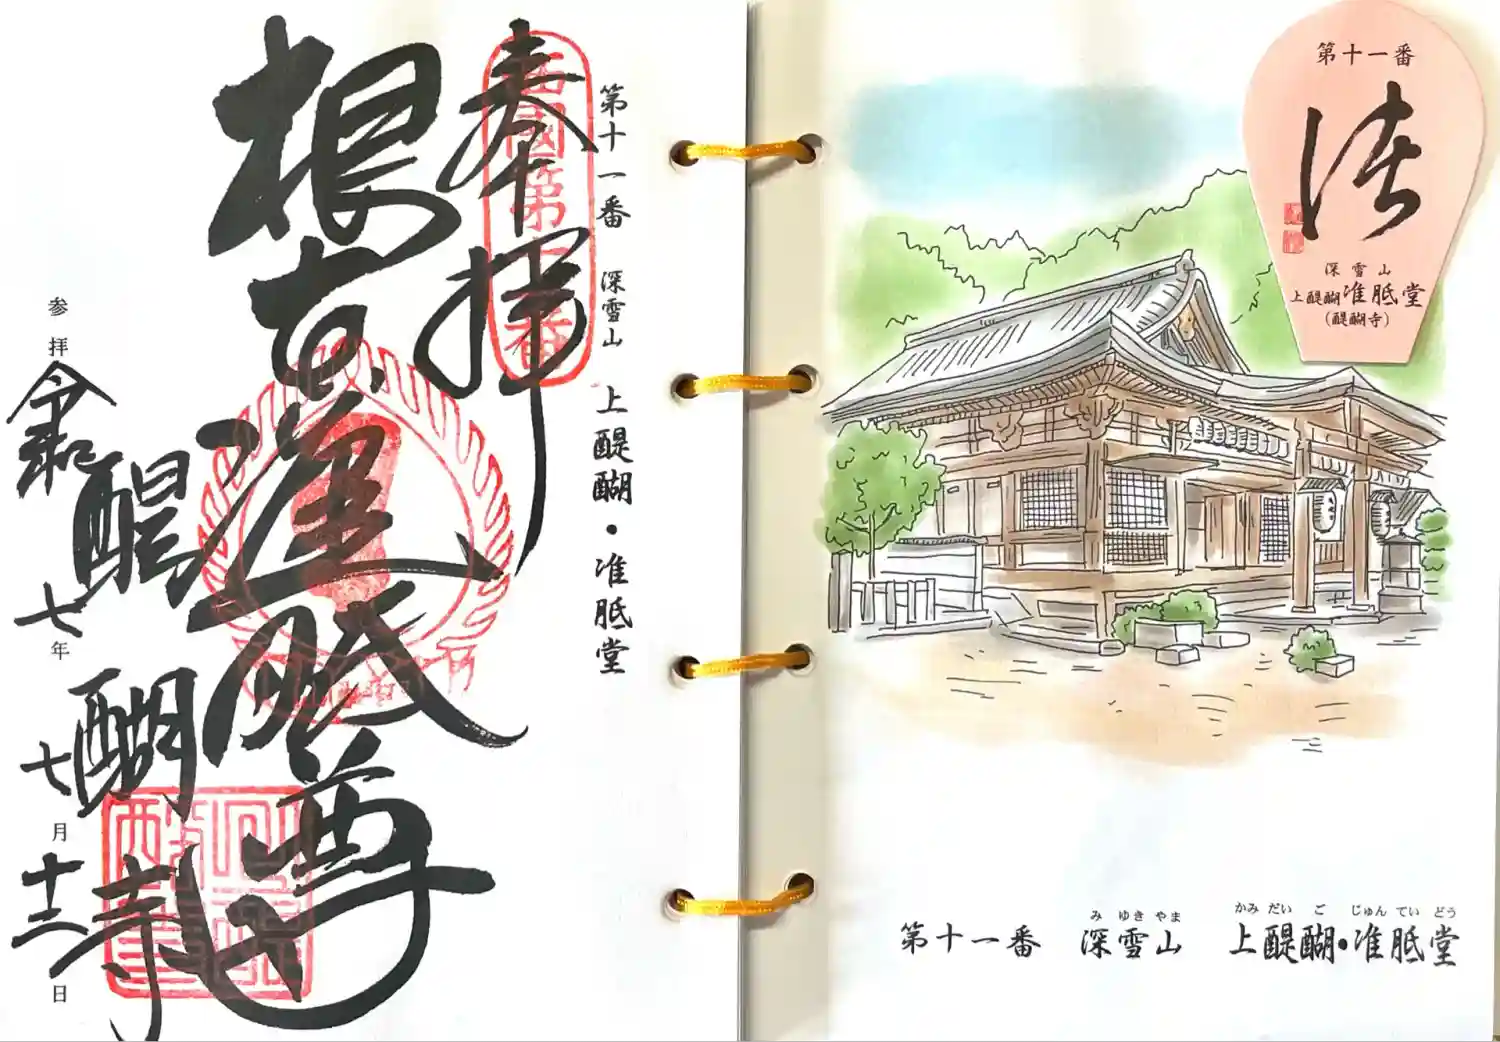 奉拝
西國第十一番
第十一番 深雪山 上醍醐・准胝堂
根本准胝尊
醍醐寺
参拝 令和七年七月十二日
第十一番
深雪山
上醍醐准胝堂
(醍醐寺)
み ゆき やま かみ だい ご じゅん てい どう
第十一番 深雪山 上醍醐・准胝堂